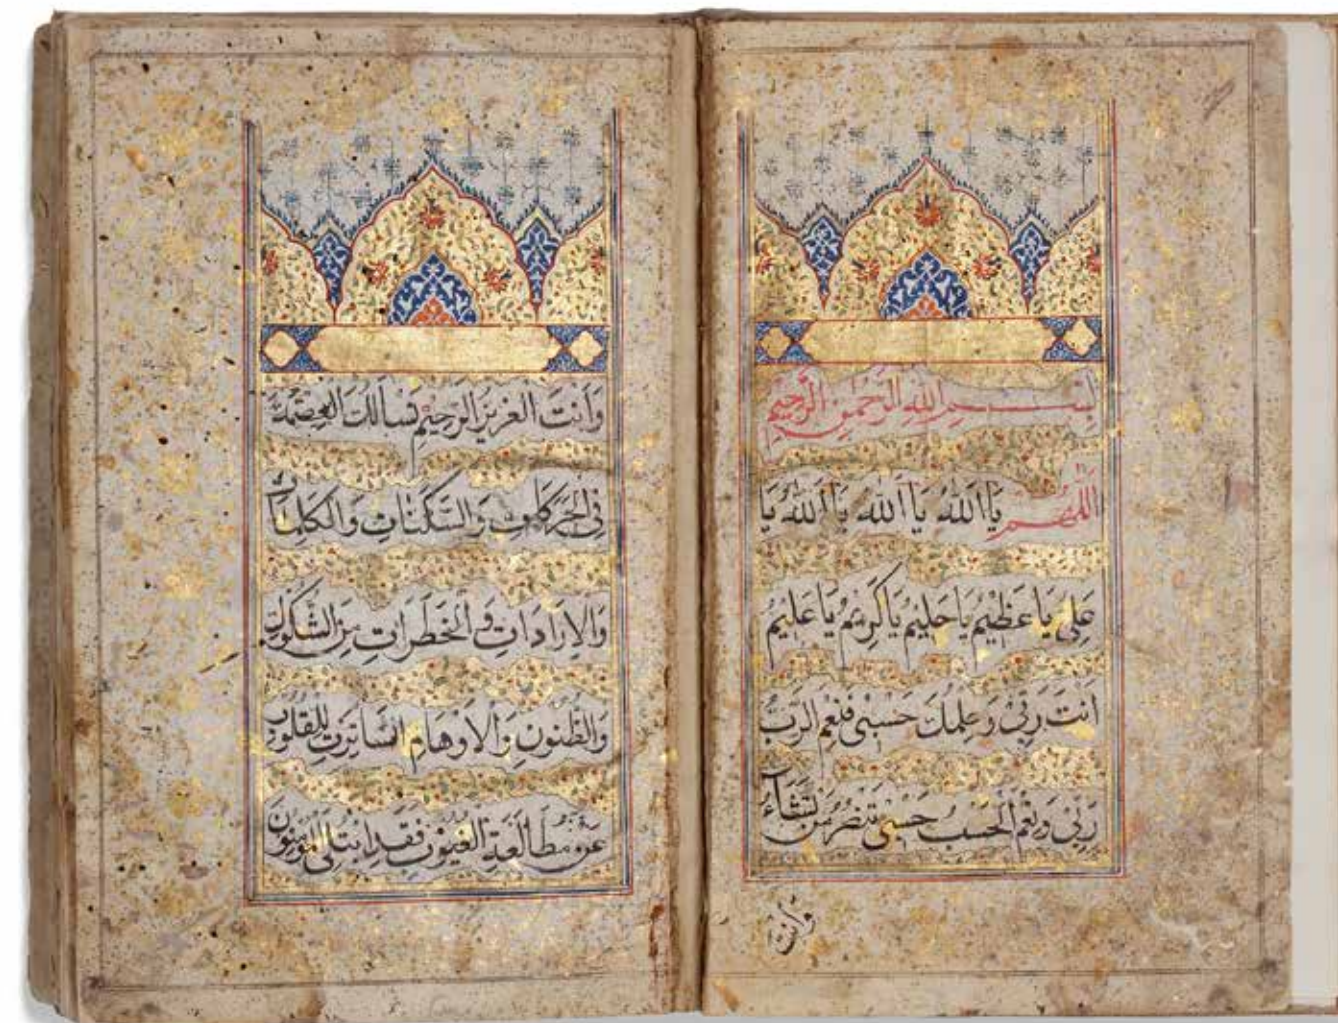 بِسْمِ اللهِ الرَّحْمٰنِ الرَّحِيْمِ
اَللّٰهُمَّ يَا اَللهُ يَا اَللهُ يَا اَللهُ يَا
عَلِيُّ يَا عَظِيْمُ يَا حَلِيْمُ يَا كَرِيْمُ يَا عَلِيْمُ
اَنْتَ رَبِّيْ وَعِلْمُكَ حَسْبِيْ فَنِعْمَ الرَّبُّ
رَبِّيْ وَنِعْمَ الْحَسْبُ حَسْبِيْ تَنْصُرُ مَنْ تَشَاءُ
وَاَنْتَ
وَاَنْتَ الْعَزِيْزُ الرَّحِيْمُ نَسْاَلُكَ الْعِصْمَةَ
فِى الْحَرَكَاتِ وَالسَّكَنَاتِ وَالْكَلِمَاتِ
وَالْاِرَادَاتِ وَالْخَطَرَاتِ مِنَ الشُّكُوْكِ
وَالظُّنُوْنِ وَالْاَوْهَامِ السَّاتِرَةِ لِلْقُلُوْبِ
عَنْ مُطَالَعَةِ الْغُيُوْبِ فَقَدِ ابْتُلِىَ الْمُؤْمِنُوْنَ